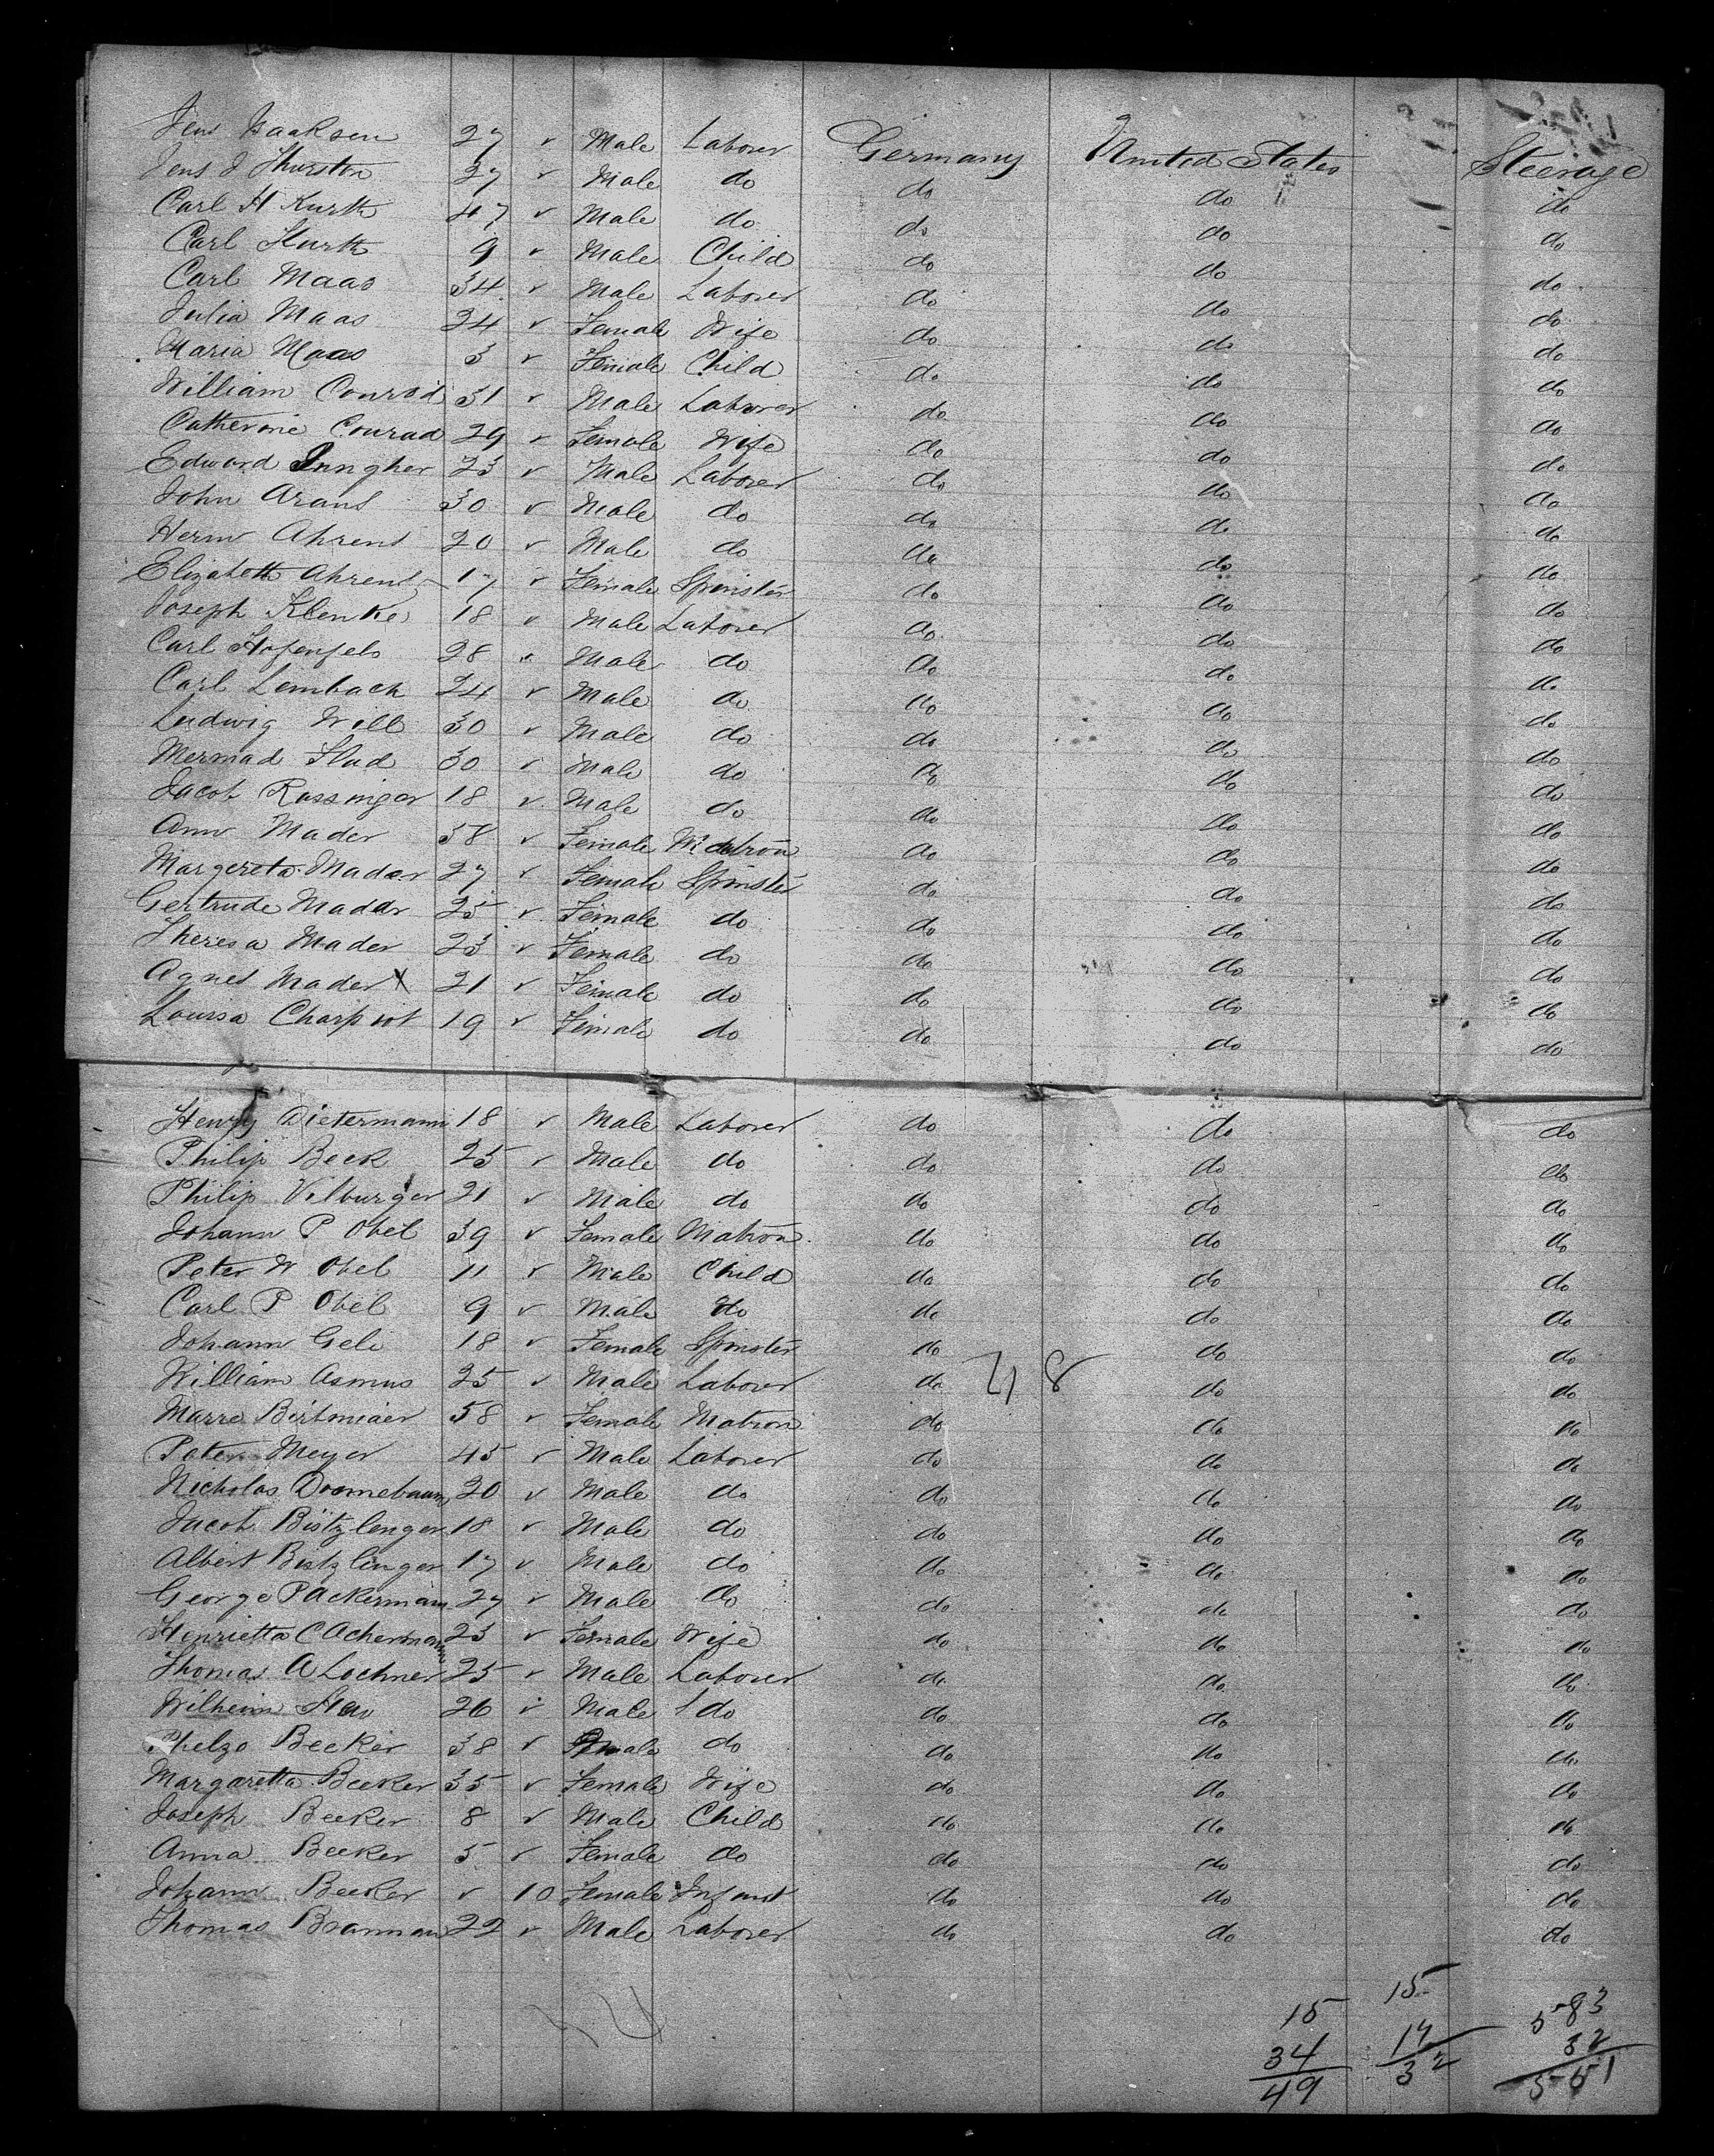 Jens Isaaksen 27 v Male Laborer Germany United States Steerage
Jens J Thurston 27 v Male do do do do
Carl H Kurth 47 v Male do do do do
Carl Kurth 9 v Male Child do do do
Carl Maas 34 v Male Laborer do do do
Julia Maas 24 v Female Wife do do do
Maria Maas 3 v Female Child do do do
William Conrad 31 v Male Laborer do do do
Catherine Conrad 29 v Female Wife do do do
Edward 23 v Male Laborer do do do
John Arans 30 v Male do do do do
Herm Ahrens 20 v Male do do do do
Elizabeth Ahrens 17 v Female Spinster do do do
Joseph Klenke 18 v Male Laborer do do do
Carl 28 v Male do do do do
Carl Lembach 24 v Male do do do do
Ludwig Will 30 v Male do do do do
Mermad 30 v Male do do do do
Jacob Rassinger 18 v Male do do do do
Ann Mader 58 v Female Matron do do do
Margereta Mader 27 v Female Spinster do do do
Gertrude Mader 25 v Female do do do do
Theresa Mader 23 v Female do do do do
Agnes Mader X 21 v Female do do do do
Louisa Charpiot 19 v Female do do do do
Henry Dietermann 18 v Male Laborer do do do
Philip Beck 25 v Male do do do do
Philip Vilburger 21 v Male do do do do
Johann P Obel 39 v Female Matron do do do
Peter W Obel 11 v Male Child do do do
Carl P Obel 9 v Male do do do do
Johann Geli 18 v Female Spinster do do do
William Asmus 25 v Male Laborer do 48 do do
Marre Birtmiaer 58 v Female Matron do do do
Peter Meyer 45 v Male Laborer do do do
Nicholas Dornebaum 20 v Male do do do do
Jacob Bistzlenger 18 v Male do do do do
Albert Bistzlinger 17 v Male do do do do
George P Ackermann 27 v Male do do do do
Henrietta C Achermann 23 v Female Wife do do do
Thomas A Lochner 25 v Male Laborer do do do
Wilheim 26 v Male do do do do
Phelzo Becker 38 v Male do do do do
Margaretta Becker 35 v Female Wife do do do
Joseph Becker 8 v Male Child do do do
Anna Becker 5 v Female do do do do
Johann Becker v 10 Female Infant do do do
Thomas Brannan 22 v Male Laborer do do do
15 15 583
34 17 32
49 32 551